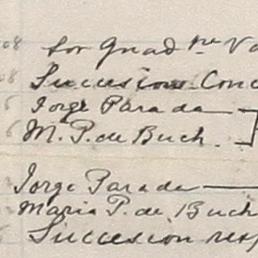 08 Sor Guad pe Va
08 Sucesion Conc
6 Jorge Parada
6 M. P. de Buch.
Jorge Parada
Maria P. de Buch
Succesion resp